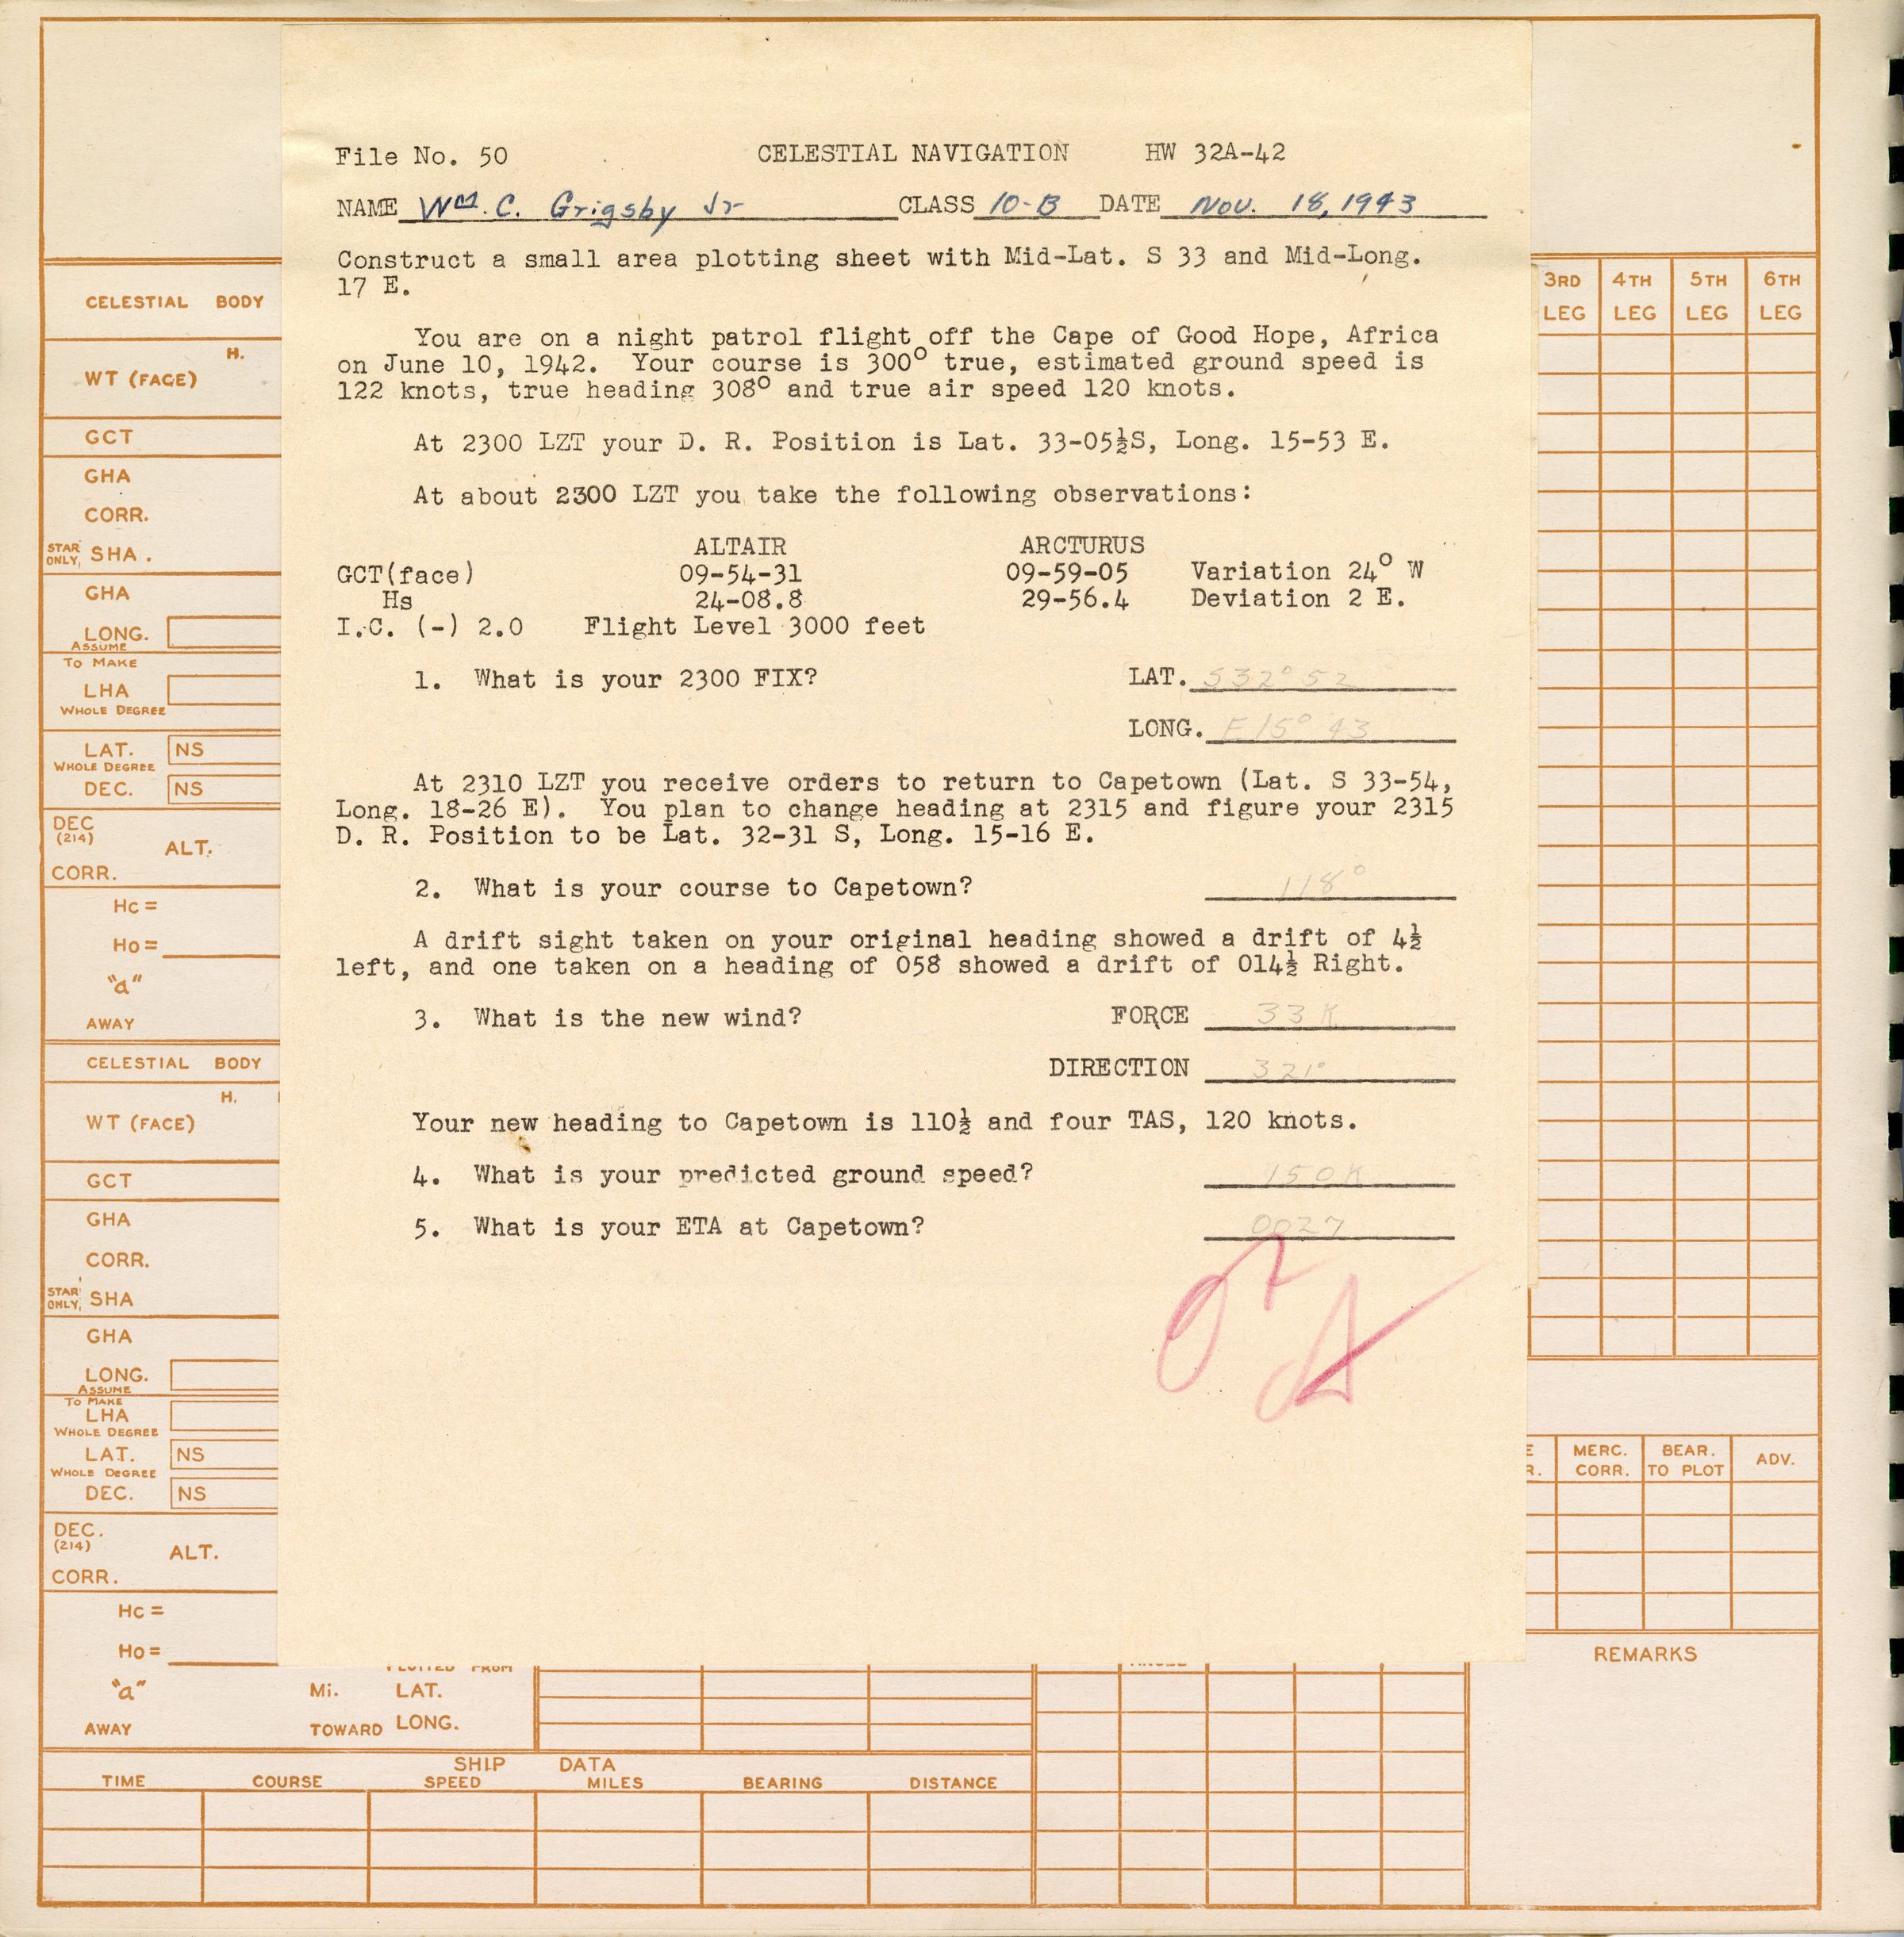 File No. 50 CELESTIAL NAVIGATION HW 32A-42
NAME Wm. C. Grigsby Jr CLASS 10-B DATE Nov. 18, 1943
Construct a small area plotting sheet with Mid-Lat. S 33 and Mid-Long.
17 E.
You are on a night patrol flight off the Cape of Good Hope, Africa
on June 10, 1942. Your course is 300° true, estimated ground speed is
122 knots, true heading 308° and true air speed 120 knots.
At 2300 LZT your D. R. Position is Lat. 33-05½S, Long. 15-53 E.
At about 2300 LZT you take the following observations:
ALTAIR ARCTURUS
GCT(face) 09-54-31 09-59-05 Variation 24° W
Hs 24-08.8 29-56.4 Deviation 2 E.
I.C. (-) 2.0 Flight Level 3000 feet
1. What is your 2300 FIX? LAT. S32° 52
LONG. E15° 43
At 2310 LZT you receive orders to return to Capetown (Lat. S 33-54,
Long. 18-26 E). You plan to change heading at 2315 and figure your 2315
D. R. Position to be Lat. 32-31 S, Long. 15-16 E.
2. What is your course to Capetown? 118°
A drift sight taken on your original heading showed a drift of 4½
left, and one taken on a heading of 058 showed a drift of 014½ Right.
3. What is the new wind? FORCE 33 K
DIRECTION 321°
Your new heading to Capetown is 110½ and four TAS, 120 knots.
4. What is your predicted ground speed? 150K
5. What is your ETA at Capetown? 0027
CELESTIAL BODY
H.
WT (FACE)
GCT
GHA
CORR.
STAR ONLY, SHA .
GHA
LONG.
ASSUME
TO MAKE
LHA
WHOLE DEGREE
LAT. NS
WHOLE DEGREE
DEC. NS
DEC
(214) ALT.
CORR.
Hc =
Ho =
"a"
AWAY
CELESTIAL BODY
H.
WT (FACE)
GCT
GHA
CORR.
STAR ONLY, SHA
GHA
LONG.
ASSUME
TO MAKE
LHA
WHOLE DEGREE
LAT. NS
WHOLE DEGREE
DEC. NS
DEC.
(214) ALT.
CORR.
Hc =
Ho =
"a" Mi. LAT.
AWAY TOWARD LONG.
SHIP DATA
TIME COURSE SPEED MILES BEARING DISTANCE
3RD 4TH 5TH 6TH
LEG LEG LEG LEG
MERC. BEAR. ADV.
CORR. TO PLOT
REMARKS